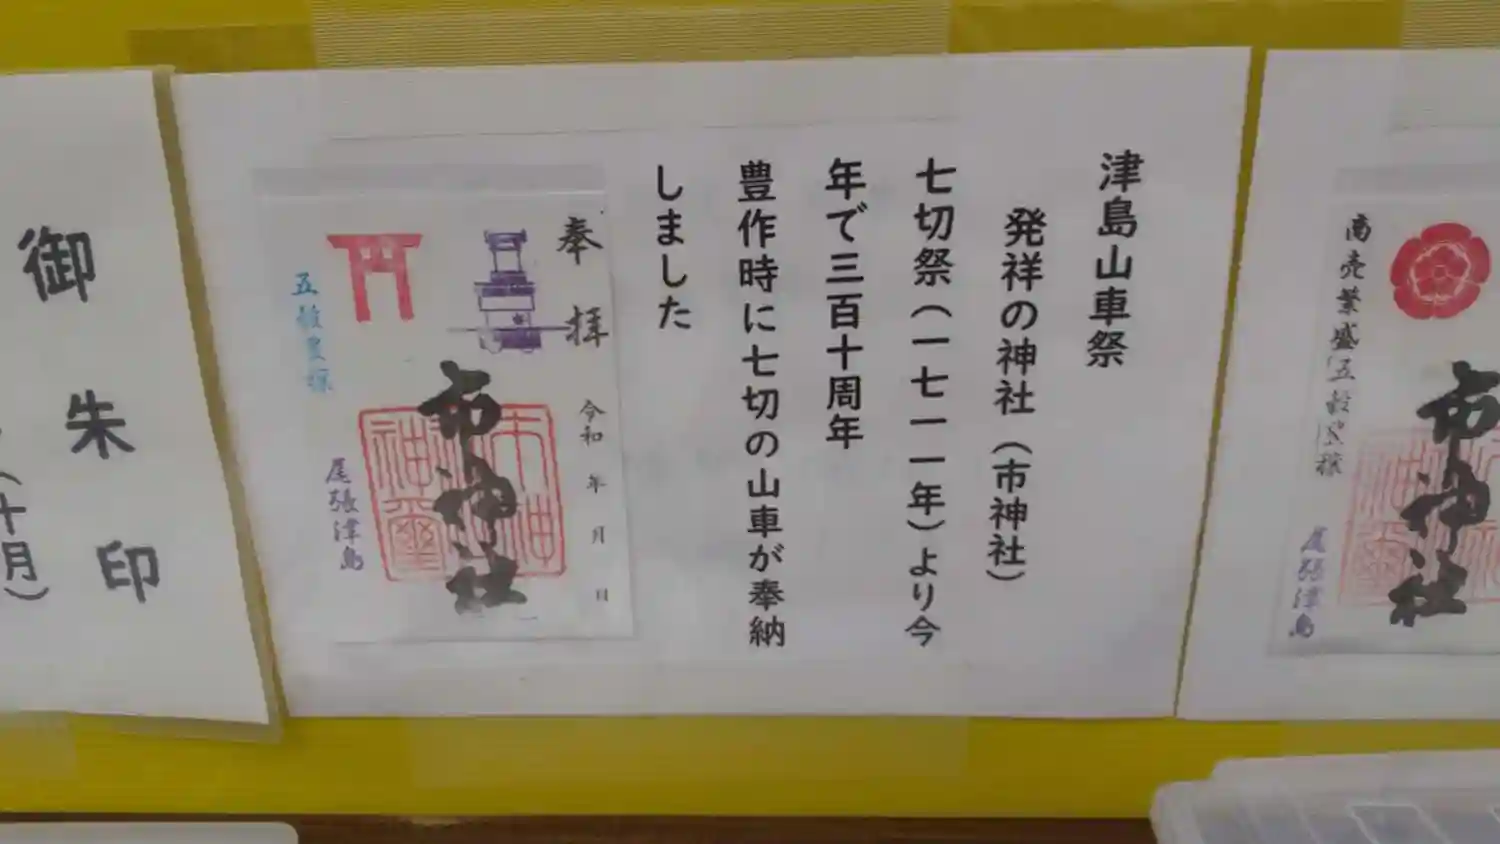 津島山車祭
発祥の神社（市神社）
七切祭（一七一一年）より今
年で三百十周年
豊作時に七切の山車が奉納
しました
奉拝
令和 年 月 日
市神社
五穀豊穣
尾張津島
御朱印
十月）
商売繁盛
五穀豊穣
市神社
尾張津島